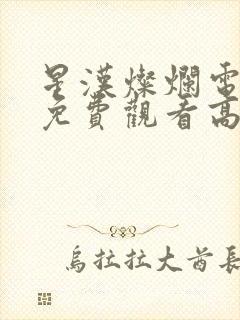 星漢燦爛電
免費觀看高
烏拉拉大酋長